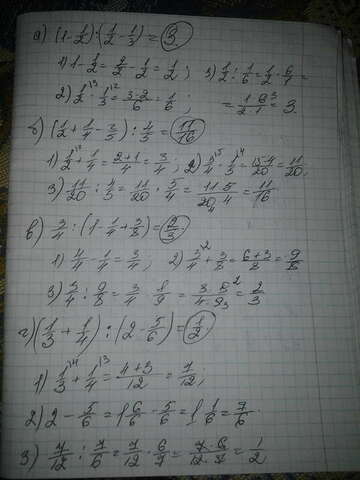 а) (1-1/2):(1/2-1/3) = 3.
1) 1-1/2 = 2/2-1/2 = 1/2; 3) 1/2 : 1/6 = 1/2 · 6/1 =
2) 1/2 - 1/3 = 3-2/6 = 1/6; = 1·6/2·1 = 3.
б) (1/2+1/4-1/5) : 4/5 = 11/16
1) 1/2+1/4 = 2+1/4 = 3/4; 2) 3/4 - 1/5 = 15-4/20 = 11/20;
3) 11/20 : 4/5 = 11/20 · 5/4 = 11·5/20·4 = 11/16
в) 3/4 : (1-1/4+3/8) = 2/3
1) 4/4-1/4 = 3/4; 2) 3/4+3/8 = 6+3/8 = 9/8
3) 3/4 : 9/8 = 3/4 · 8/9 = 3·8/4·9 = 2/3
г) (1/3+1/4) : (2-5/6) = 1/2
1) 1/3+1/4 = 4+3/12 = 7/12;
2) 2-5/6 = 1 6/6 - 5/6 = 1 1/6 = 7/6.
3) 7/12 : 7/6 = 7/12 · 6/7 = 7·6/12·7 = 1/2